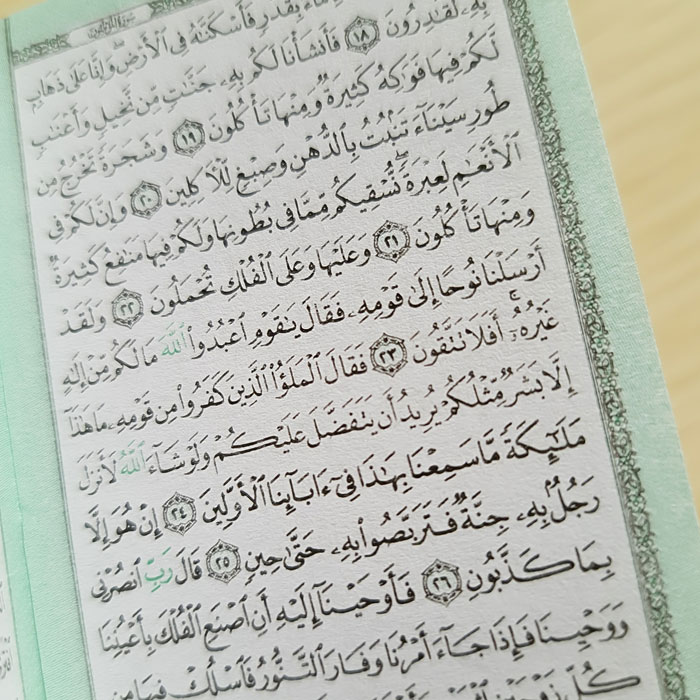 سورة المؤمنون
بِقَدَرٍ فَأَسْكَنَّٰهُ فِي ٱلْأَرْضِ وَإِنَّا عَلَىٰ ذَهَابٍۭ
بِهِۦ لَقَٰدِرُونَ ١٨ فَأَنشَأْنَا لَكُم بِهِۦ جَنَّٰتٍ مِّن نَّخِيلٍ وَأَعْنَٰبٍ
لَّكُمْ فِيهَا فَوَٰكِهُ كَثِيرَةٌ وَمِنْهَا تَأْكُلُونَ ١٩ وَشَجَرَةً تَخْرُجُ مِن
طُورِ سَيْنَآءَ تَنۢبُتُ بِٱلدُّهْنِ وَصِبْغٍ لِّلْأَكِلِينَ ٢٠ وَإِنَّ لَكُمْ فِي
ٱلْأَنْعَٰمِ لَعِبْرَةً ۖ نُّسْقِيكُم مِّمَّا فِي بُطُونِهَا وَلَكُمْ فِيهَا مَنَٰفِعُ كَثِيرَةٌ
وَمِنْهَا تَأْكُلُونَ ٢١ وَعَلَيْهَا وَعَلَى ٱلْفُلْكِ تُحْمَلُونَ ٢٢ وَلَقَدْ
أَرْسَلْنَا نُوحًا إِلَىٰ قَوْمِهِۦ فَقَالَ يَٰقَوْمِ ٱعْبُدُوا۟ ٱللَّهَ مَا لَكُم مِّنْ إِلَٰهٍ
غَيْرُهُۥٓ ۖ أَفَلَا تَتَّقُونَ ٢٣ فَقَالَ ٱلْمَلَؤُا۟ ٱلَّذِينَ كَفَرُوا۟ مِن قَوْمِهِۦ مَا هَٰذَآ
إِلَّا بَشَرٌ مِّثْلُكُمْ يُرِيدُ أَن يَتَفَضَّلَ عَلَيْكُمْ وَلَوْ شَآءَ ٱللَّهُ لَأَنزَلَ
مَلَٰٓئِكَةً مَّا سَمِعْنَا بِهَٰذَا فِيٓ ءَابَآئِنَا ٱلْأَوَّلِينَ ٢٤ إِنْ هُوَ إِلَّا
رَجُلٌۢ بِهِۦ جِنَّةٌ فَتَرَبَّصُوا۟ بِهِۦ حَتَّىٰ حِينٍ ٢٥ قَالَ رَبِّ ٱنصُرْنِي
بِمَا كَذَّبُونِ ٢٦ فَأَوْحَيْنَآ إِلَيْهِ أَنِ ٱصْنَعِ ٱلْفُلْكَ بِأَعْيُنِنَا
وَوَحْيِنَا فَإِذَا جَآءَ أَمْرُنَا وَفَارَ ٱلتَّنُّورُ فَٱسْلُكْ فِيهَا مِن
كُلٍّ زَوْجَيْنِ